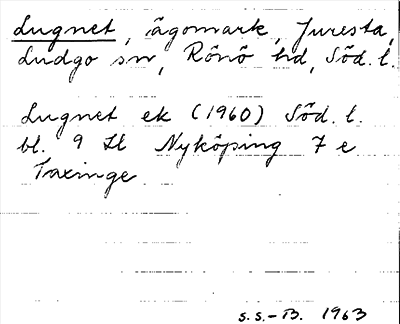 Lugnet, ägomark, Juresta,
Ludgo sn, Rönö hd, Söd. l.
Lugnet ek (1960) Söd. l.
bl. 9 Il Nyköping 7 e
Taxinge
S. S.-B. 1963